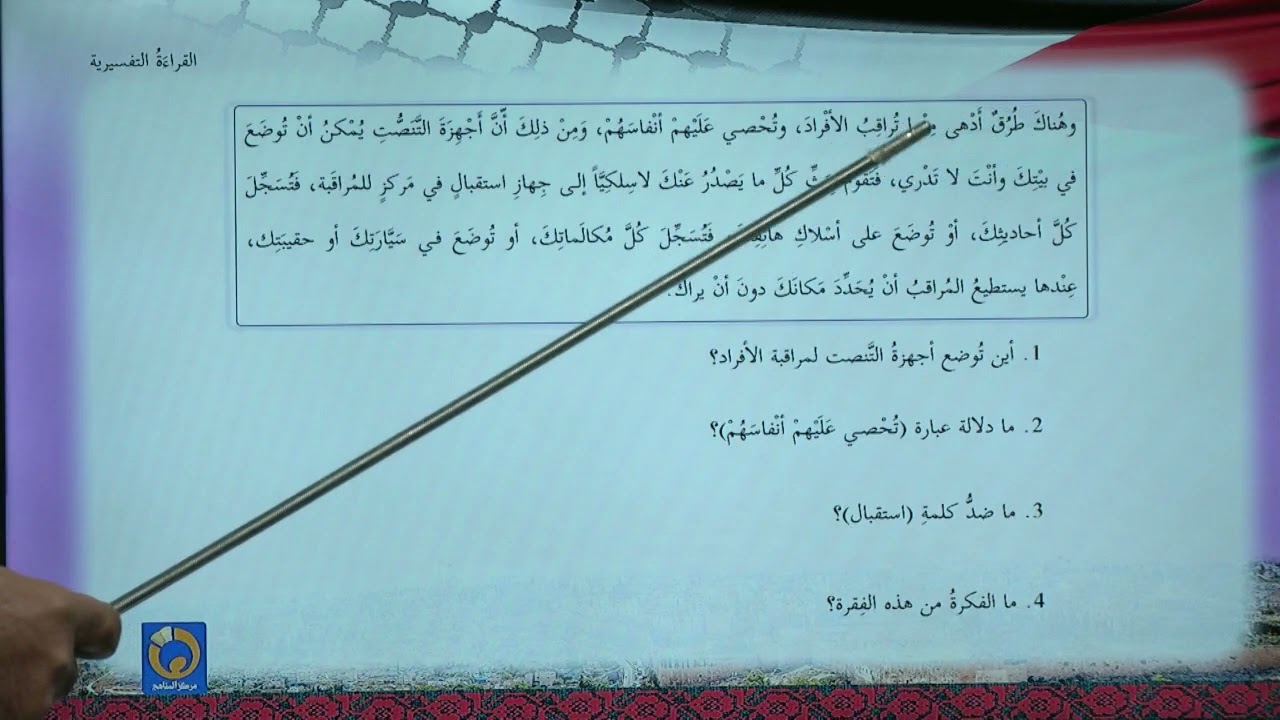 القراءَةُ التفسيرية
وهُناكَ طُرُقٌ أَدْهى تُراقِبُ الأَفْرادَ، وتُحْصي عَلَيْهِمْ أنْفاسَهُمْ، وَمِنْ ذلِكَ أَنَّ أَجْهِزَةَ التَّنَصُّتِ يُمْكنُ أنْ تُوضَعَ
في بيْتِكَ وأنْتَ لا تَدْري، فَتَقومُ بِبَثِّ كُلِّ ما يَصْدُرُ عَنْكَ لاسِلكِيَّاً إلى جِهازِ استقبالٍ في مَركزٍ للمُراقَبة، فَتُسَجِّلَ
كُلَّ أحاديثِكَ، أوْ تُوضَعَ على أسْلاكِ هاتِفِكَ، فَتُسَجِّلَ كُلَّ مُكالَماتِكَ، أو تُوضَعَ في سَيَّارَتِكَ أو حقيبَتِك،
عِنْدها يستطيعُ المُراقبُ أنْ يُحَدِّدَ مَكانَكَ دونَ أنْ يراكَ.
1. أين تُوضع أجهزةُ التَّنصت لمراقبة الأفراد؟
2. ما دلالة عبارة (تُحْصي عَلَيْهِمْ أنْفاسَهُمْ)؟
3. ما ضدُّ كلمةِ (استقبال)؟
4. ما الفكرةُ من هذه الفِقرة؟
مركز المناهج